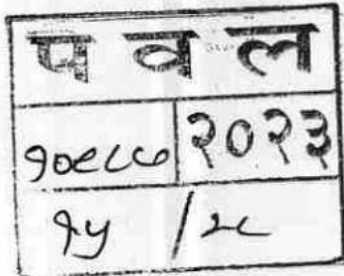 प व ल
१०९८७ २०२३
१५ / २८